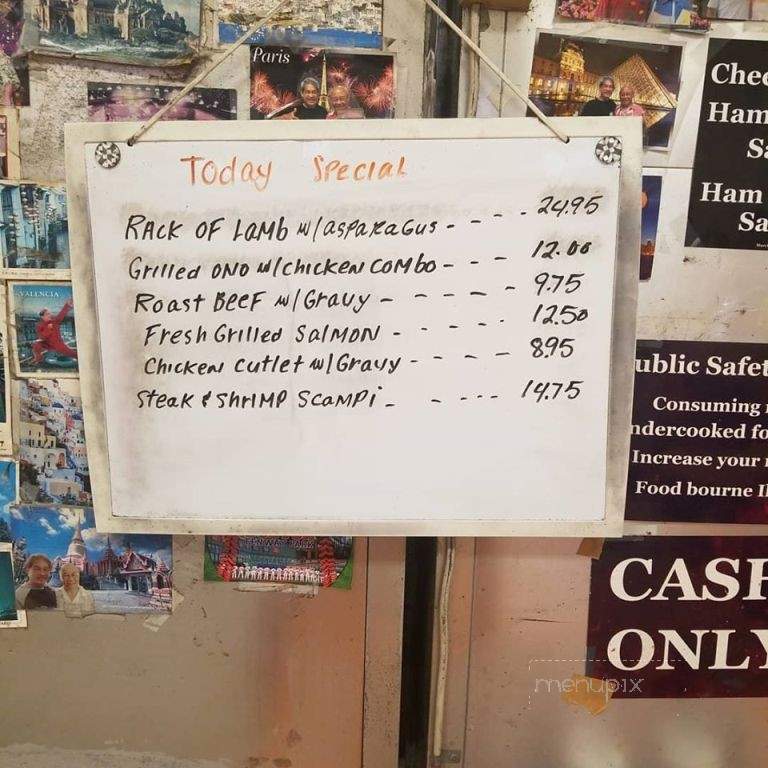 Paris
Today Special
Rack of Lamb w/asparagus - - - . 24.95
Grilled ono w/chicken combo - - - 12.00
Roast Beef w/Gravy - - - - - 9.75
Fresh Grilled Salmon - - - - . 12.50
Chicken cutlet w/Gravy - - - - 8.95
Steak & Shrimp Scampi - - - - - 14.75
Chee
Ham
Sa
Ham
Sa
VALENCIA
ublic Safet
Consuming
ndercooked fo
Increase your
Food bourne Il
FENWAY PARK
CASH
ONLY
menupix